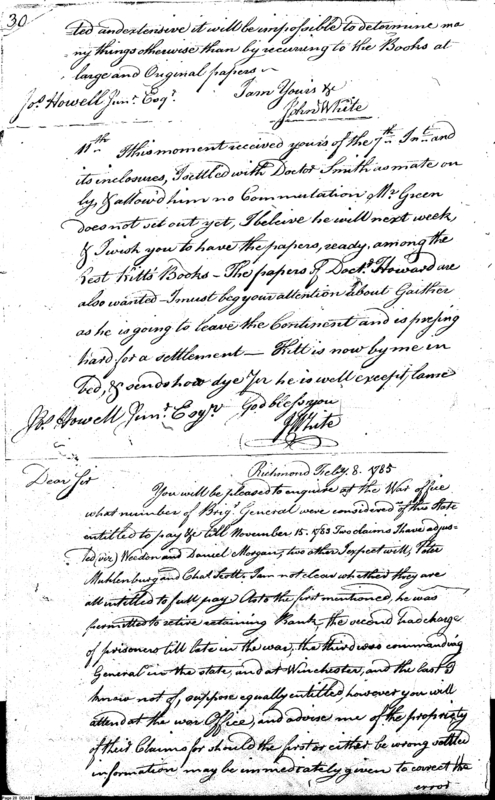 30
ted undextensive it will be impossible to determine ma
ny things otherwise than by recurring to the Books at
large and Original papers
I am Yours &c
Jos. Howell Junr. Esqr.
John White
11th. This moment received yours of the 7th. Int. and
its inclosures, I settled with Doctor Smith as mate on
ly, & allow'd him no Commutation Mr. Green
does not set out yet, I beleive he will next week
& I wish you to have the papers, ready, among the
rest Kilts Books - The papers of Doctr. Howard are
also wanted - I must beg your attention about Gaither
as he is going to leave the Continent and is pressing
hard for a settlement - Kilt is now by me in
bed, & sends how dye for he is well except, lame
God bless you
Jos. Howell Junr. Esqr.
J White
Richmond Feby. 8. 1785
Dear Sir
You will be pleased to enquire at the War office
what number of Brigr. General were considered of this State
entitled to pay &c till November 15. 1783 Two claims I have adjus-
ted, viz) Weedon and Daniel Morgan, two others I expect will, Peter
Muhlenburg and Chas. Scott. I am not clear whether they are
all entitled to full pay As to the first mentioned, he was
permitted to retire retaining Rank, the second had charge
of prisoners till late in the war, the third was commanding
General in the state, and at Winchester, and the last I
know not of, suppose equally entitled however you will
attend at the war Office, and advise me of the propriety
of their Claims for should the first or either be wrong settled
information may be immediately given to correct the
error